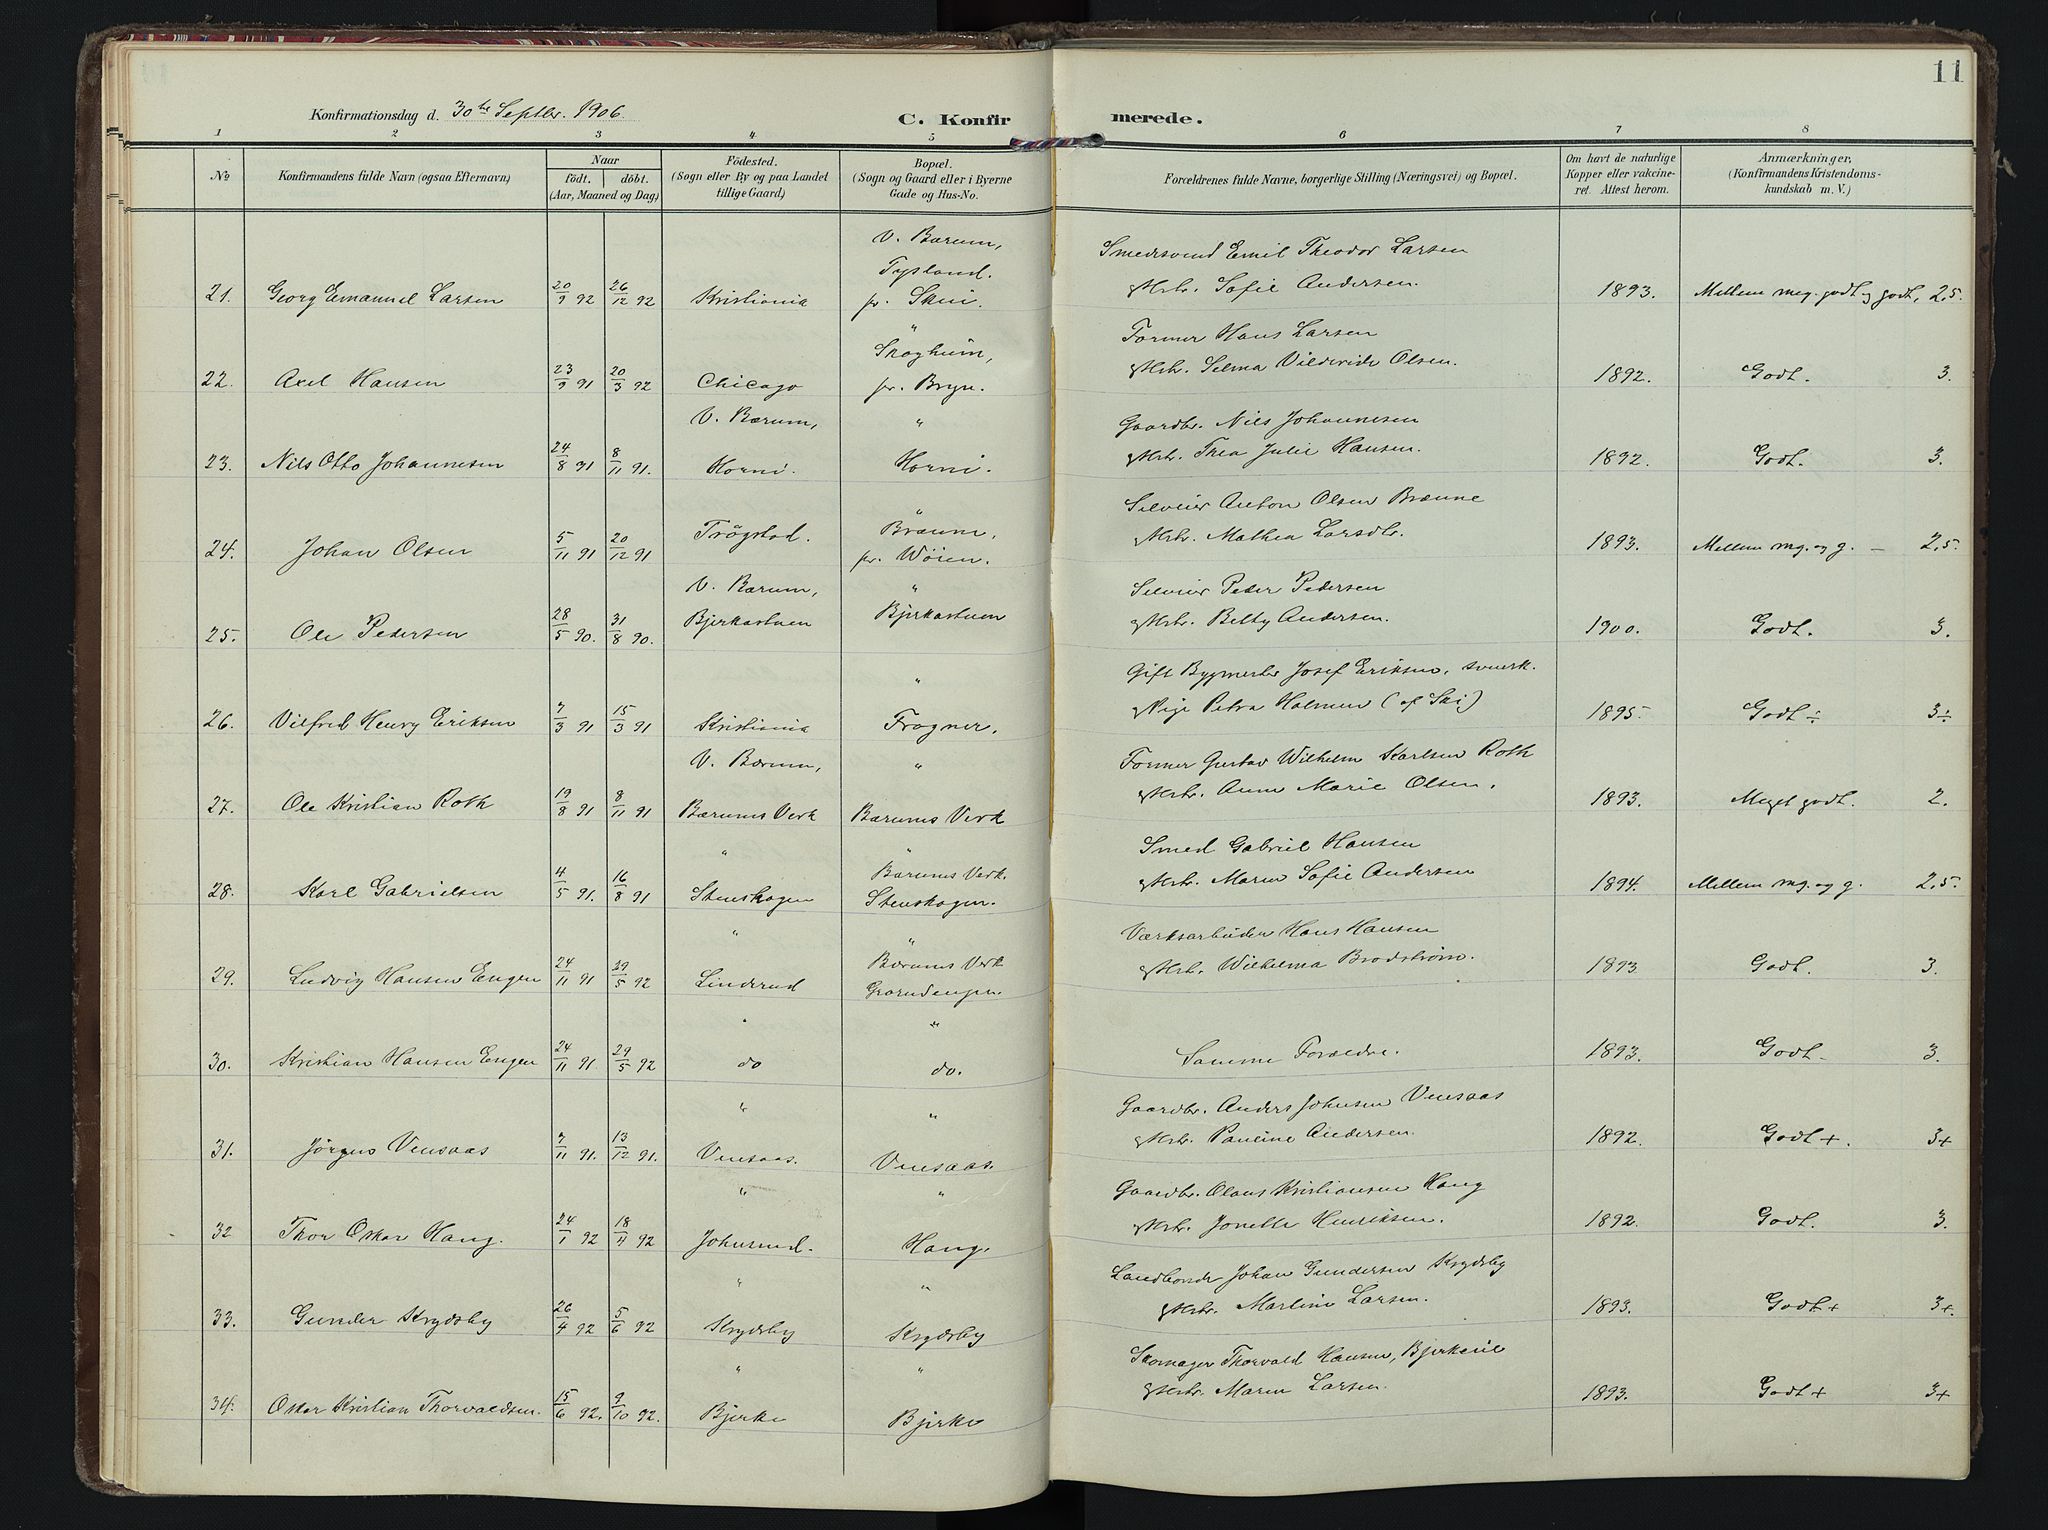 11
Konfirmationsdag d. 30te Septbr. 1906.
C. Konfirmerede.
1 2 3 4 5 6 7 8
No
Konfirmandens fulde Navn (ogsaa Efternavn)
Naar
födt. döbt.
(Aar, Maaned og Dag)
Födested.
(Sogn eller By og paa Landet
tillige Gaard)
Bopæl.
(Sogn og Gaard eller i Byerne
Gade og Hus-No.
Forældrenes fulde Navne, borgerlige Stilling (Næringsvei) og Bopæl.
Om havt de naturlige
Kopper eller vakcine-
ret. Attest herom.
Anmærkninger,
(Konfirmandens Kristendoms-
kundskab m. V.)
V. Bærum,
Tysland.
Smedsvend Emil Theodor Larsen
21. Georg Emanuel Larsen 20/9 92 26/12 92 Kristiania pr. Skui. & Hst. Sofie Andersen. 1893. Mellem meg. godt og godt, 2,5.
"
Skogheim,
Former Hans Larsen
22. Axel Hansen 23/9 91 20/3 92 Chicago pr. Bryn. & Hst. Selma Olsen. 1892. Godt. 3.
V. Bærum, "
Gaardbr. Nils Johannesen
23. Nils Otto Johannesen 24/8 91 8/11 91. Horni. Horni. & Hst. Thea Julie Hansen. 1892. Godt. 3.
"
Anton Olsen Brænne
24. Johan Olsen 5/11 91 20/12 91 Trögstad. pr. Wöien. Hst. Mathea Larsdtr. 1893. Mellem mg. og g. — 2,5.
V. Bærum, "
Peder Pedersen
25. Ole Pedersen 28/5 90. 31/8 90. Bjerkastuen Bjerkastuen & Hst. Betty Andersen. 1900. Godt. 3.
"
Gift Bygmester Josef Eriksen,
26. Vilfred Henry Eriksen 7/3 91 15/3 91 Kristiania Frogner. & Pige Petra Holmen (af Ski) 1895. Godt ÷ 3÷
V. Bærum, "
Former Gustav Wilhelm Karlsen Roth
27. Ole Kristian Roth 19/8 91 8/11 91 Bærums Verk Bærums Verk & Hst. Anne Marie Olsen. 1893. Meget godt. 2.
" "
Bærums Verk.
Smed Gabriel Hansen
28. Karl Gabrielsen 4/5 91. 16/8 91 Stenskogen Stenskogen. & Hst. Maren Sofie Andersen 1894. Mellem mg. og g. 2,5.
" "
Bærums Verk
Værksarbeider Hans Hansen
29. Ludvig Hansen Engen 24/11 91 29/5 92 Linderud & Hst. Wilhelma Brodström. 1893 Godt. 3.
" "
30. Kristian Hansen Engen 24/11 91. 29/5 92 do do. Samme Forældre. 1893. Godt. 3.
" "
Gaardbr. Anders Johnsen Vensaas
31. Jörgen Vensaas 7/11 91. 13/12 91. Vensaas. Vensaas. & Hst. Pauline Andersen. 1892. Godt +. 3+
" "
Gaardbr. Olaus Kristiansen Haug
32 Thor Oskar Haug. 24/1 92 18/4 92 Johnsrud. Haug. & Hst. Jonette Henriksen. 1892. Godt. 3.
" "
Landbonde Johan Gundersen Krydsby
33. Gunder Krydsby 26/4 92 5/6 92 Krydsby Krydsby & Hst. Martine Larsen. 1893. Godt + 3+.
" "
Skomager Thorvald Hansen, Bjerkeeie
34. Oskar Kristian Thorvaldsen. 15/6 92. 9/10 92. Bjerke Bjerke & Hst. Maren Larsen. 1893. Godt + 3+